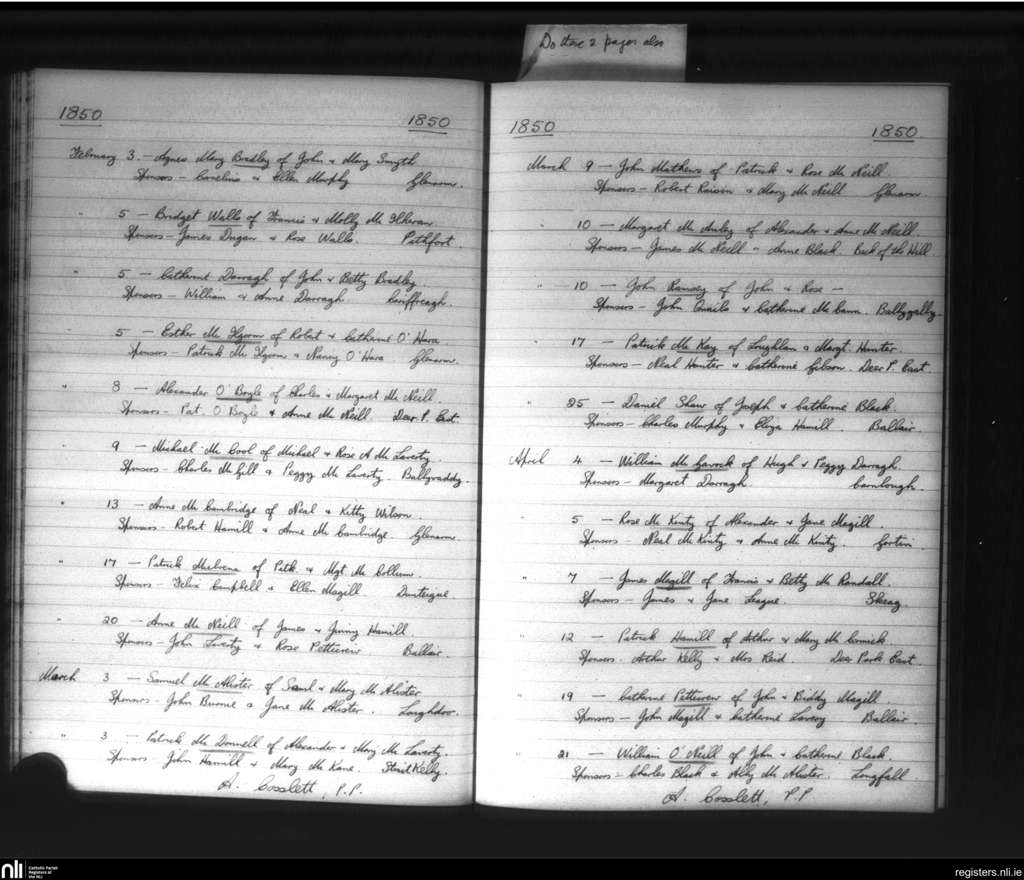 Do these 2 pages also
1850 1850
February 3. - Agnes Mary Bradley of John & Mary Smyth
Sponsors - Cornelius & Ellen Murphy Glenarm.
" 5 - Bridget Walls of Francis & Molly Mc Ilheran
Sponsors - James Dugan & Rose Walls. Pathfort.
" 5 - Catherine Darragh of John & Betty Bradley.
Sponsors - William & Anne Darragh.
5 - Esther Mc of Robert & Catherine O'Hara
Sponsors - Patrick Mc & Nancy O'Hara Glenarm.
" 8 - Alexander O'Boyle of Charles & Margaret Mc Neill.
Sponsors - Pat. O Boyle & Anne Mc Neill. Deer P. East.
9 - Michael Mc Cool of Michael & Rose A Mc Laverty.
Sponsors - Charles Mc Gill & Peggy Mc Laverty. Ballyvaddy.
" 13 - Anne Mc Cambridge of Neal & Kitty Wilson.
Sponsors - Robert Hamill & Anne Mc Cambridge. Glenarm.
" 17 - Patrick of Patk & Mgt. Mc Collum.
Sponsors - Felix Campbell & Ellen Magill. Dunteigue.
" 20 - Anne Mc Neill of James & Hamill.
Sponsors - John Laverty & Rose Petticrew Ballair.
March 3 - Samuel Mc Alister of & Mary Mc Alister
Sponsors - John Burne & Jane Mc Alister. Loughdoo.
" 3 - Patrick Mc Donnell of Alexander & Mary Mc Laverty.
Sponsors - John Hamill & Mary Mc Kane. Strait Kelly.
A. Cosslett, P.P.
1850 1850.
March 9 - John Mathews of Patrick & Rose Mc Neill.
Sponsors - Robert & Mary Mc Neill Glenarm
" 10 - Margaret Mc Auley of Alexander & Anne Mc Neill.
Sponsors - James Mc Neill - Anne Black. Back of the Hill
" 10 - John Ramsey of John & Rose -
Sponsors - John & Catherine Mc Cann. Ballygally.
" 17 - Patrick Mc Kay of Loughlan & Margt. Hunter.
Sponsors - Neal Hunter & Catherine Gibson. Deer P. East.
" 25 - Daniel Shaw of Joseph & Catherine Black.
Sponsors - Charles Murphy & Eliza Hamill. Ballair.
April 4 - William Mc Gavock of Hugh & Peggy Darragh.
Sponsors - Margaret Darragh. Carnlough.
" 5 - Rose Mc Kinty of Alexander & Jane Magill.
Sponsors - Neal Mc Kinty & Anne Mc Kinty. Gortin.
" 7 - James Magill of Francis & Betty Mc Randall.
Sponsors - James & Jane League. Skeag.
12 - Patrick Hamill of Arthur & Mary Mc Cormick
Sponsors - Arthur Kelly & Mrs Reid. Deer Park East
" 19 - Catherine Petticrew of John & Biddy Magill
Sponsors - John Magill & Catherine Lavery Ballair.
" 21 - William O'Neill of John & Catherine Black.
Sponsors - Charles Black & Ally Mc Alister. Longfall.
A. Cosslett, P.P.
nli Catholic Parish
Registers at
the NLI
registers.nli.ie